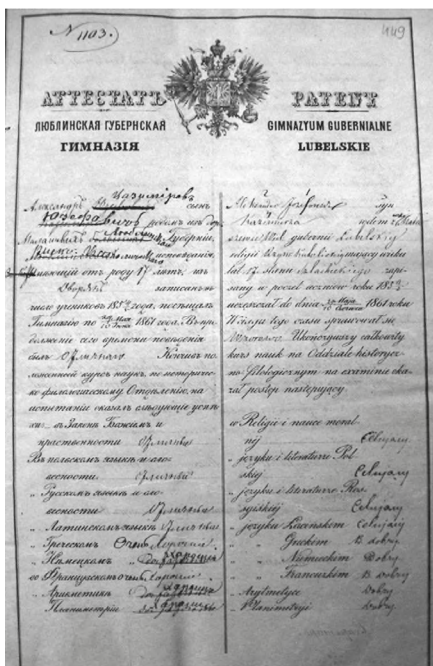 N 1103.
449
АТТЕСТАТЪ
ЛЮБЛИНСКАЯ ГУБЕРНСКАЯ
ГИМНАЗІЯ
Александръ сынъ
Казиміровъ
родомъ изъ
Губерніи,
отъ роду 17 лѣтъ, изъ
Дворянъ записанъ въ
число учениковъ 185 года, посѣщалъ
Гимназію по 1861 года. Въ про
долженіе сего времени поведенія
былъ Отличнаго Кончивъ по
ложенный курсъ наукъ по историчес
ко филологическому Отдѣленію, на
испытаніи оказалъ слѣдующіе успѣ
хи: въ Законѣ Божіемъ и
нравственности Отличные
Въ польскомъ языкѣ и сло
весности Отличные
„ Русскомъ языкѣ и сло
весности Отличные
„ Латинскомъ языкѣ Отличные
„ Греческомъ Очень хорошіе
„ Нѣмецкомъ хорошіе
во Французскомъ очень хорошіе
„ Ариѳметикѣ хорошіе
„ Планиметріи хорошіе
PATENT
GIMNAZYUM GUBERNIALNE
LUBELSKIE
syn
Kazimierza rodem z
gubernii Lubelskiej
religii wieku
lat 17 stanu szlacheckiego zapi
sany w poczet uczniów roku 185
uczęszczał do dnia 1861 roku
W ciągu tego czasu sprawował się
Wzorowo Ukończywszy całkowity
kurs nauk na Oddziale historycz
no-filologicznym na examinie oka
zał postęp następujący.
w Religii i nauce moral
nej Celujący
„ języku i literaturze Pol
skiej Celujący
„ języku i literaturze Ros
syjskiej Celujący
„ języku Łacińskim Celujący
„ Greckim B. dobry
„ Niemieckim Dobry
„ Francuskim B. dobry
„ Arytmetyce Dobry
„ Planimetryi Dobry